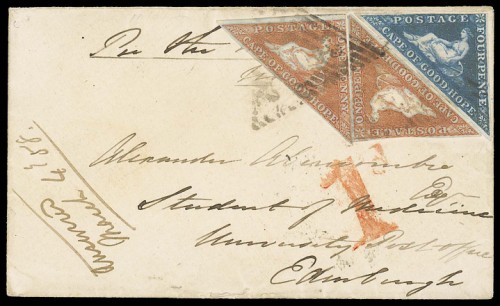 Per the
POSTAGE
CAPE OF GOOD HOPE
ONE PENNY
POSTAGE
CAPE OF GOOD HOPE
ONE PENNY
POSTAGE
CAPE OF GOOD HOPE
FOURPENCE
Alexander Abercrombie
Esqr
Student of Medicine
University Post office
Edinburgh
1
Answered
March